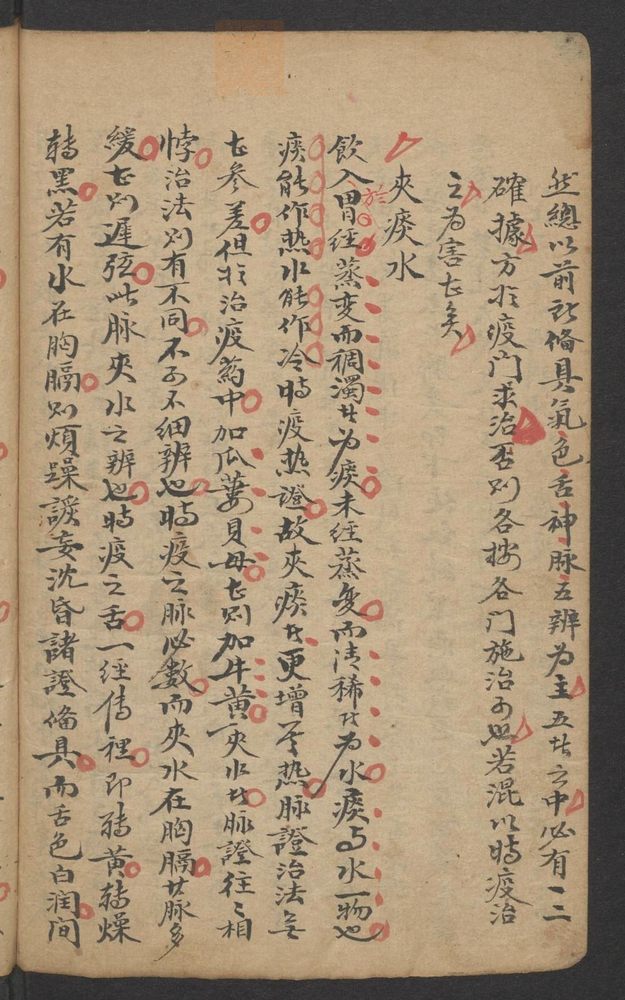 然總以前所俻具氣色舌神脉五辨为主五者之中必有一二
確據方於疫門求治否則各按各門施治可也若混以時疫治
之为害甚矣
夾痰水
飲入於胃經蒸变而稠濁者为痰未經蒸变而清稀者为水痰与水一物也
痰能作热水能作冷時疫热證故夾痰者更增其热脉證治法無
甚参差但於治疫藥中加瓜蔞貝母甚則加牛黃夾水者脉證往〻相
悖治法則有不同不可不细辨也時疫之脉必數而夾水在胸膈其脉多
緩甚則遲弦此脉夾水之辨也時疫之舌一經傳裡即轉黃轉燥
轉黑若有水在胸膈則煩躁譫妄沈昏諸證俻具而舌色白润间